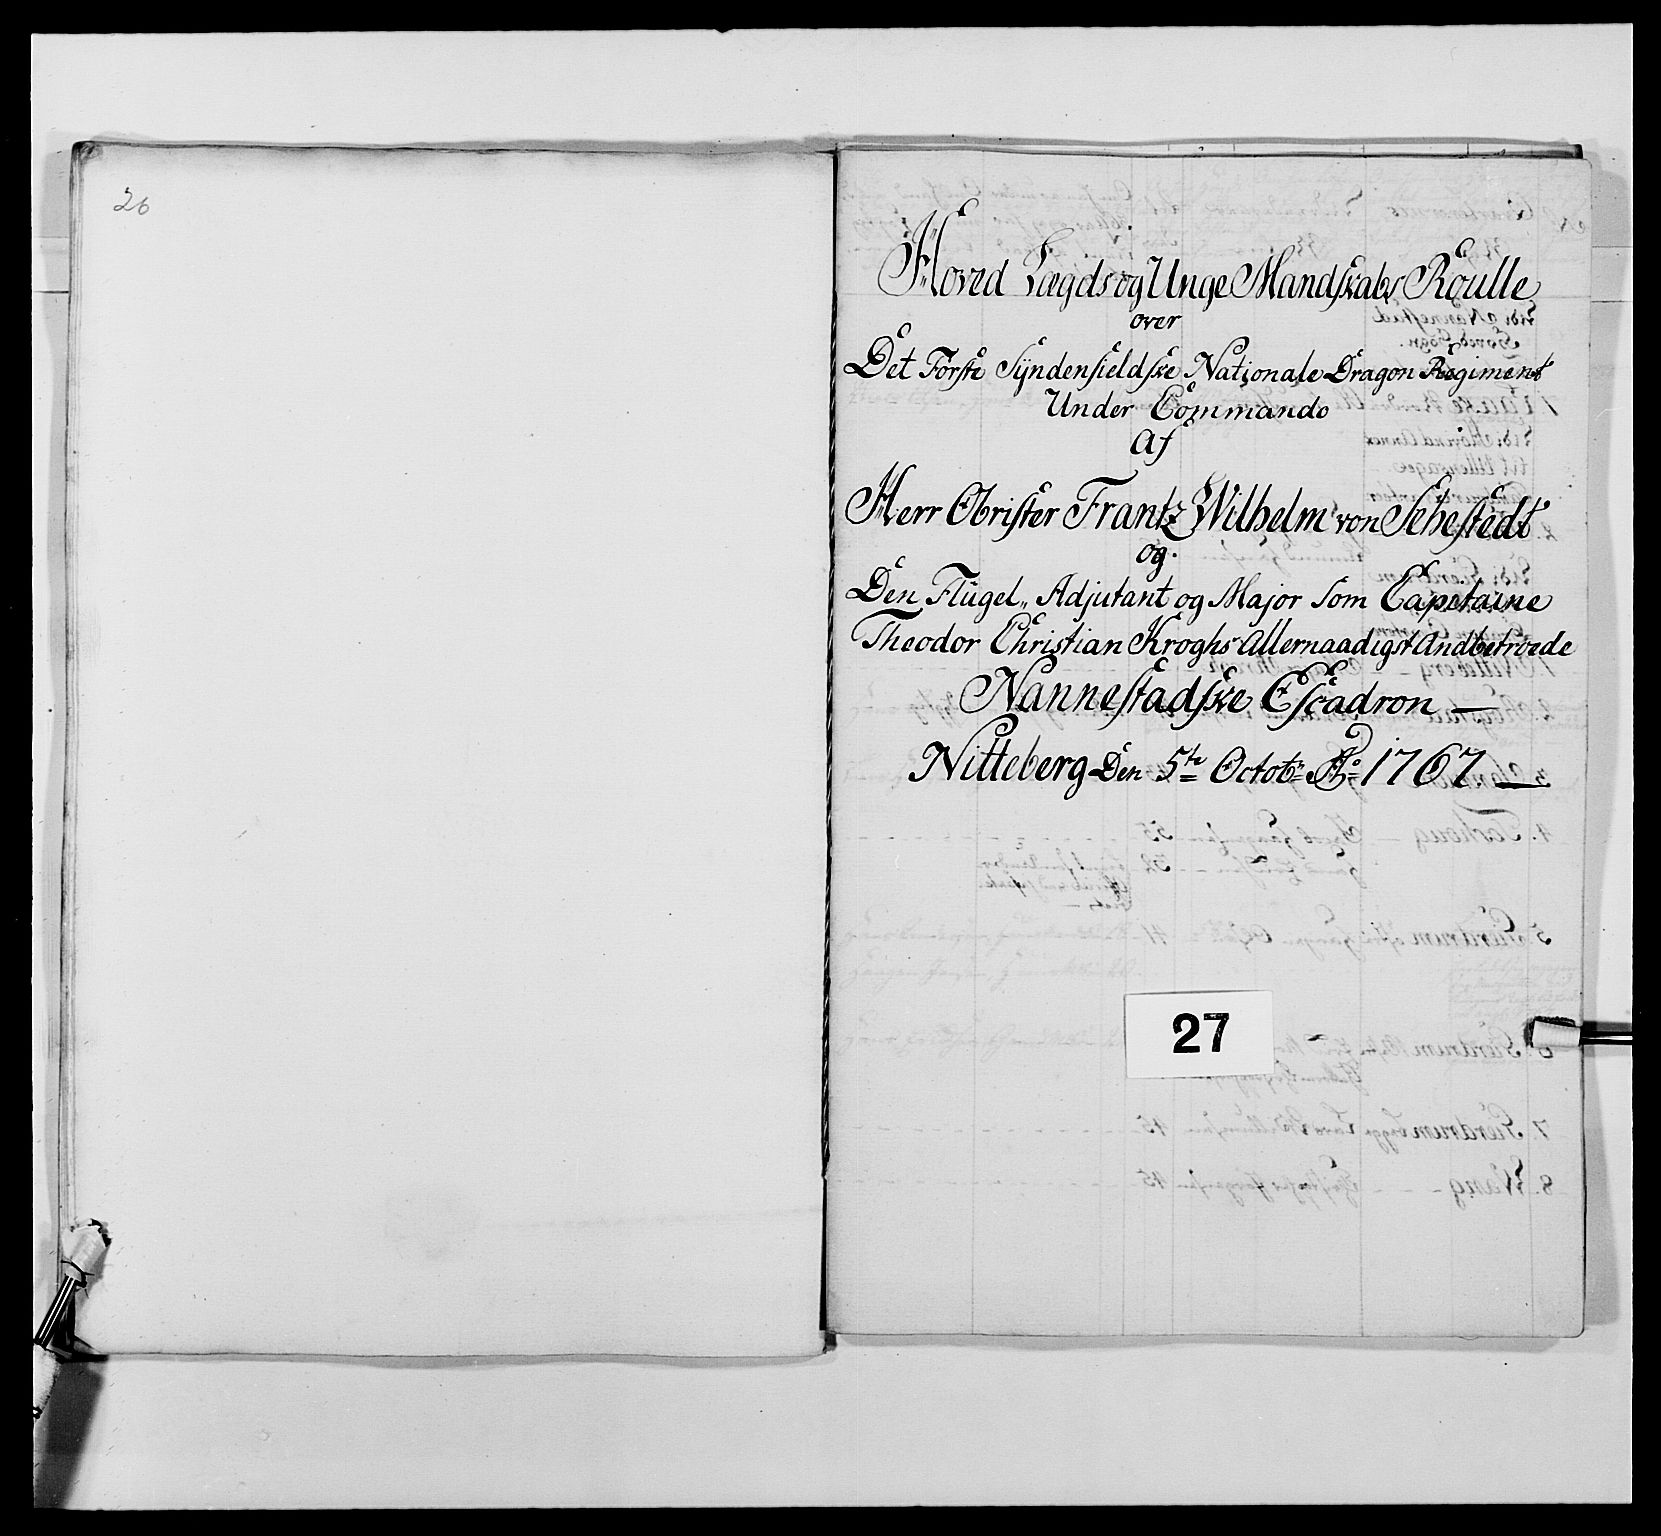 26
Hoved Lægds og Unge Mandskabs Roulle
over
Det Förste Syndenfieldske Nationale Dragon Regiment
Under Commando
Af
Herr Obrister Frantz Wilhelm von Sehestedt
og.
Den Flügel„ Adjutant og Major Som Capitaine
Theodor Christian Kroghs Allernaadigst Andbetroede
Nannestadske Escadron —
Nitteberg Den 5te Octobr Ao 1767. —
27